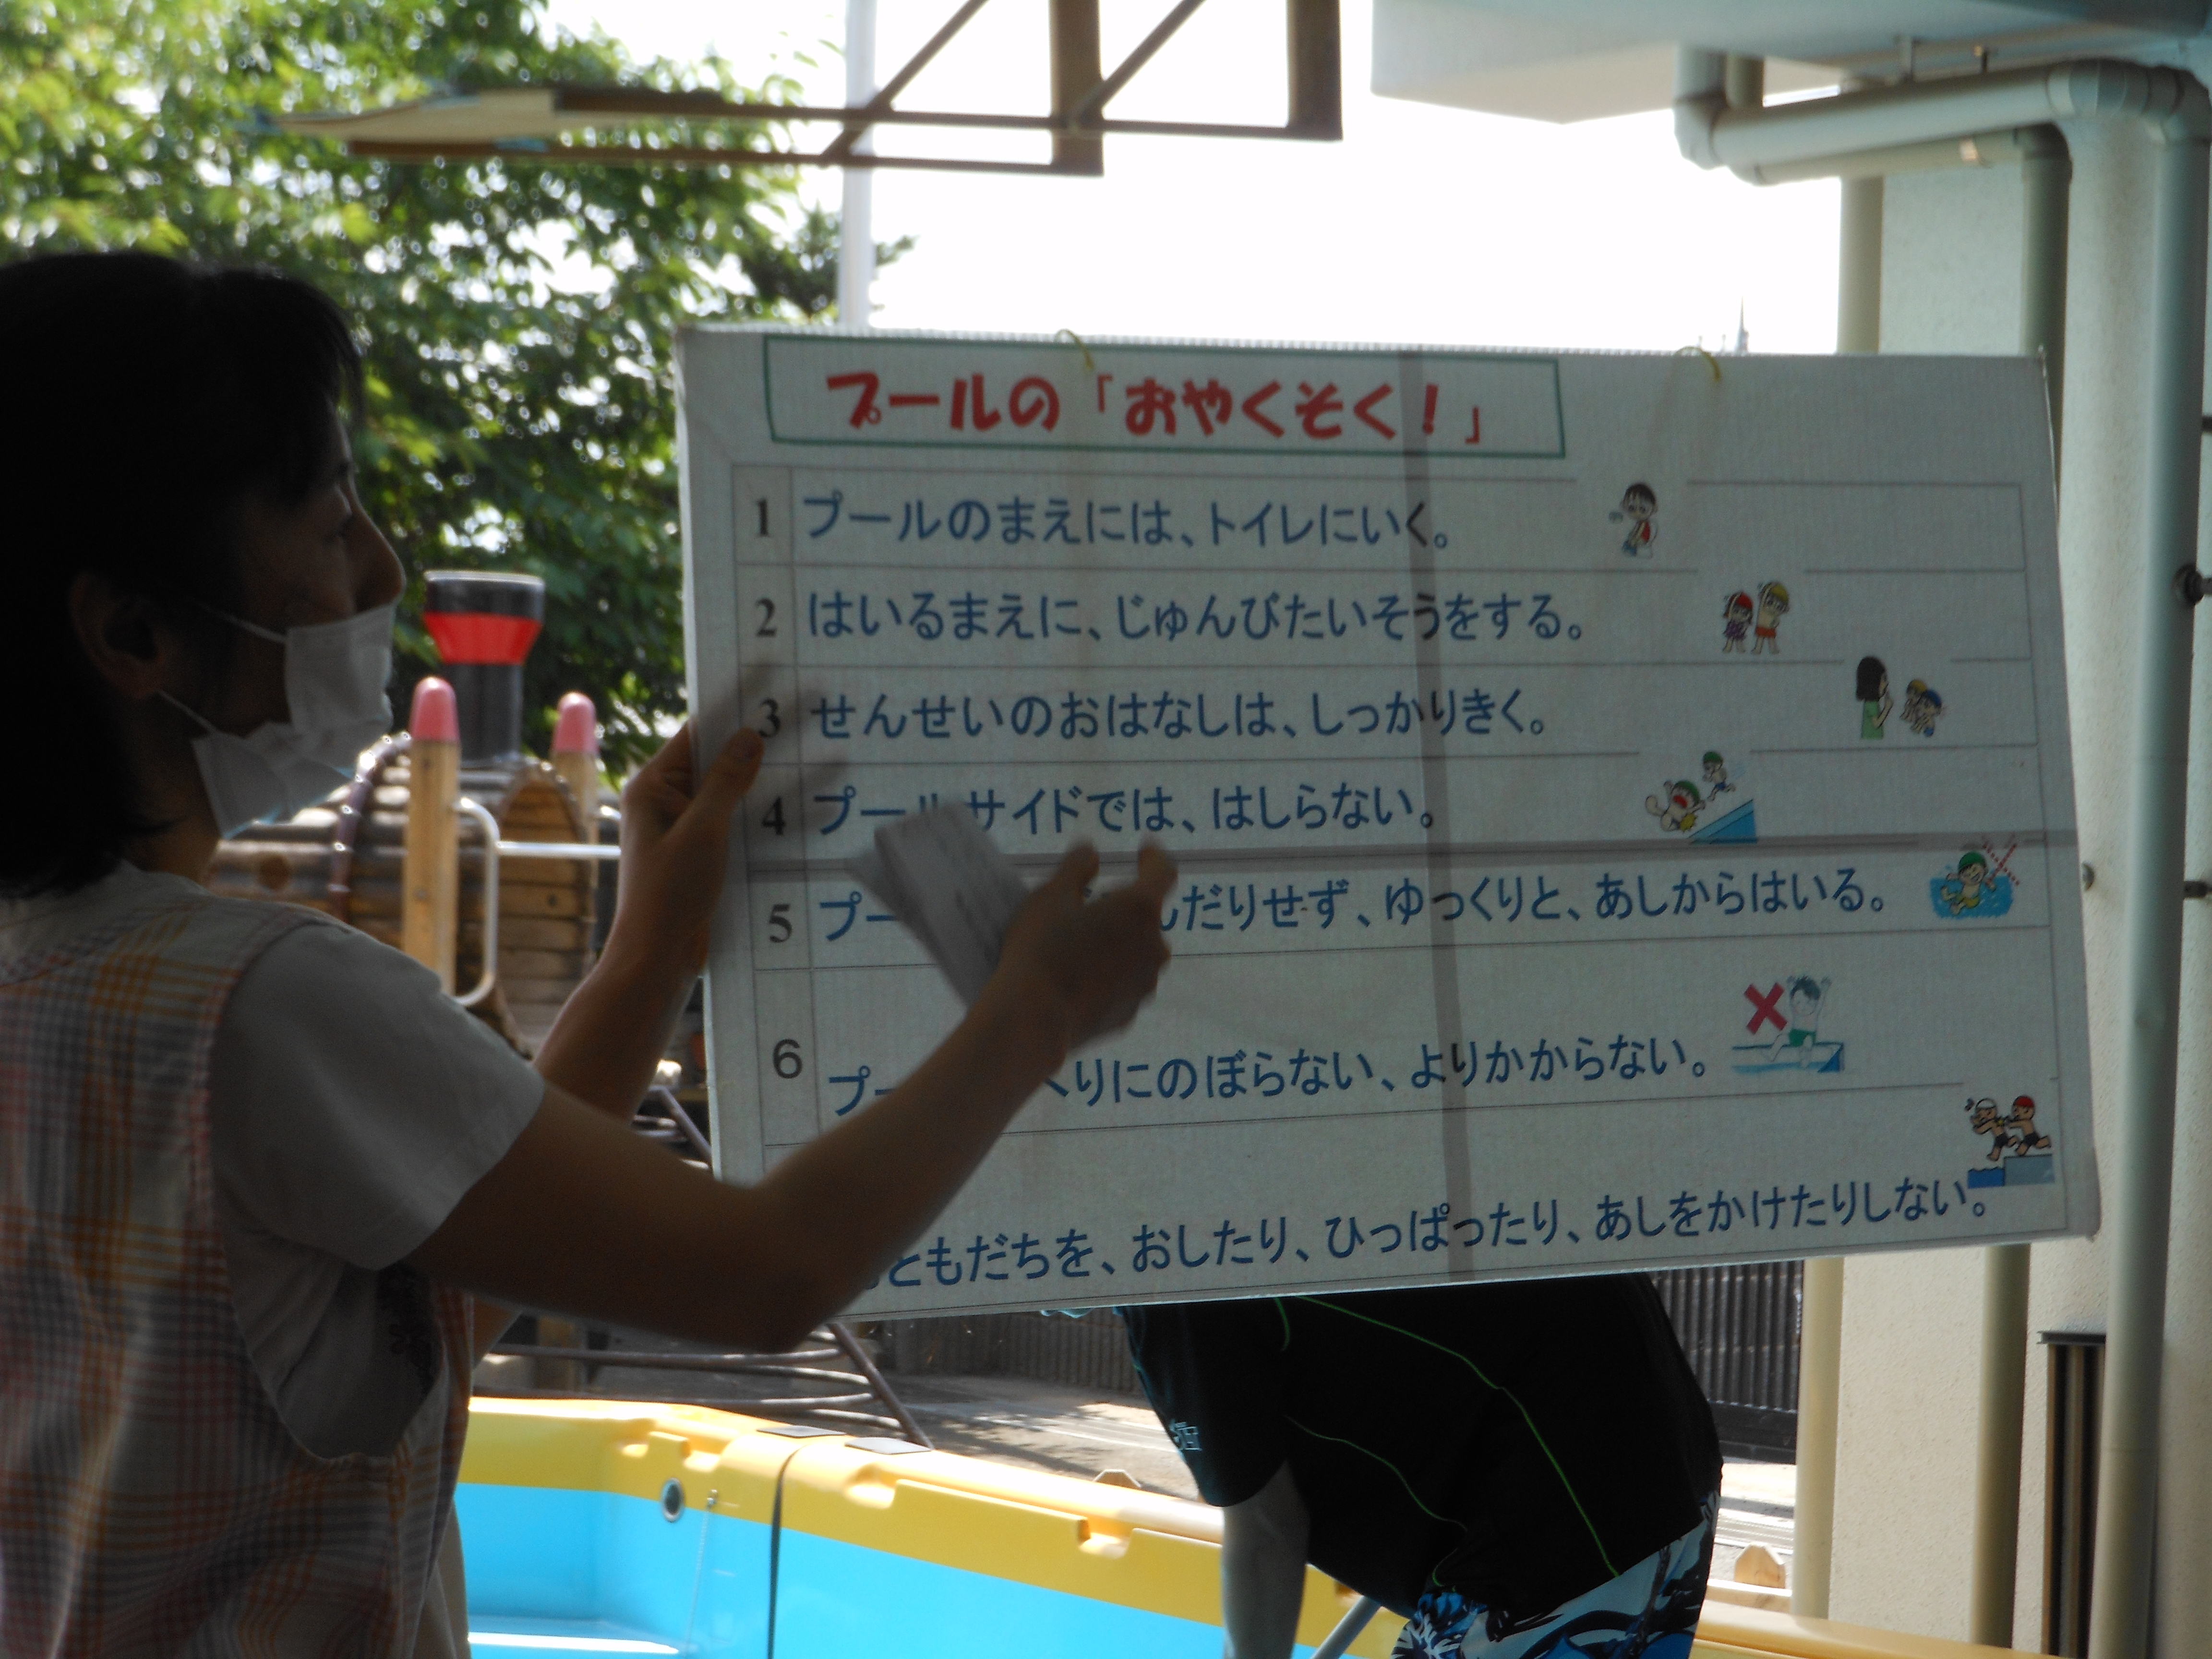 プールの「おやくそく！」
1 プールのまえには、トイレにいく。
2 はいるまえに、じゅんびたいそうをする。
3 せんせいのおはなしは、しっかりきく。
4 プールサイドでは、はしらない。
5 プー んだりせず、ゆっくりと、あしからはいる。
6 プー へりにのぼらない、よりかからない。
おともだちを、おしたり、ひっぱったり、あしをかけたりしない。